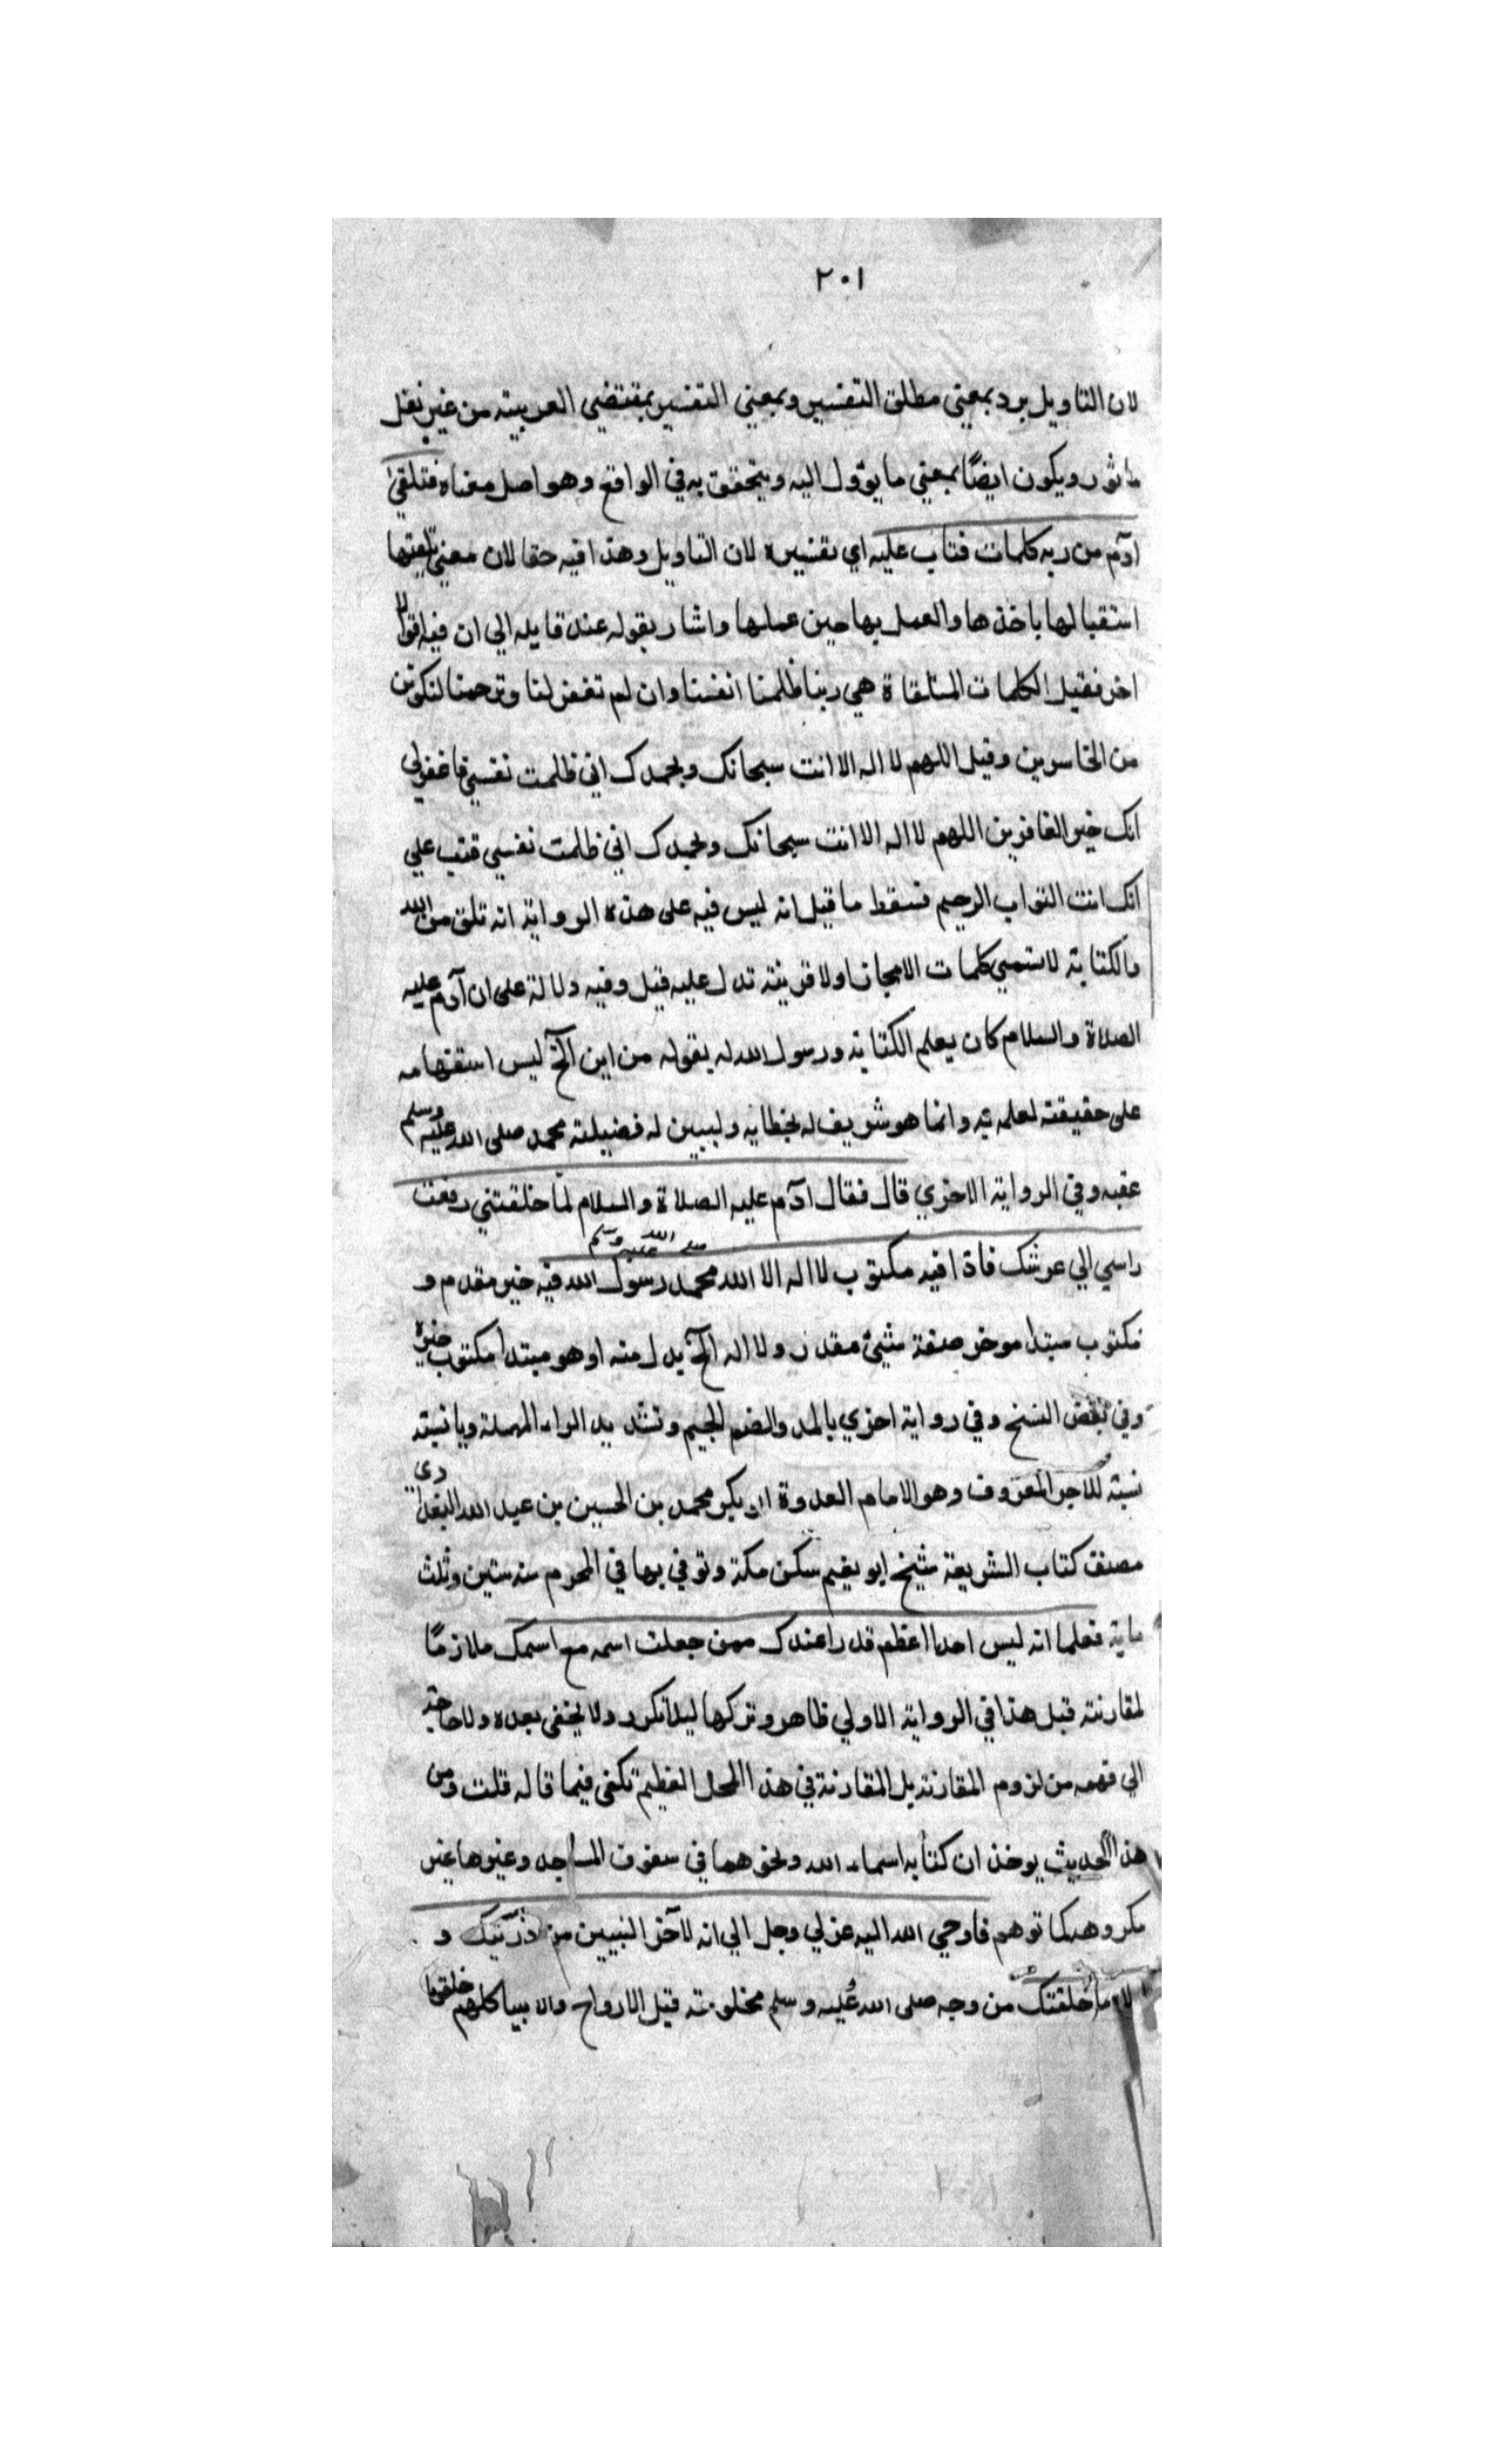 ٢٠١
لان التاويل يرد بمعني مطلق التفسير وبمعني التفسير بمقتضي العربية من غير نقل
ماثور ويكون ايضًا بمعني ما يؤول اليه ويتحقق به في الواقع وهو اصل معناه فتلقي
ادم من ربه كلمات فتاب عليه اي تفسيره لان التاويل وهذا فيه حقا لان معني تلقيها
استقبالها باخذها والعمل بها حين عملها واشار بقوله عند قايله الي ان فيه اقوالا
اخر فقيل الكلمات المتلقاة هي ربنا ظلمنا انفسنا وان لم تغفر لنا وترحمنا لنكونن
من الخاسرين وقيل اللهم لا اله الا انت سبحانك وبحمدك اني ظلمت نفسي فاغفر لي
انك خير الغافرين اللهم لا اله الا انت سبحانك وبحمدك اني ظلمت نفسي فتب علي
انك انت التواب الرحيم فسقط ما قيل انه ليس فيه على هذه الرواية انه تلقى من الله
والكتابة لا تسمي كلمات الا مجازا ولا قرينة تدل عليه قيل وفيه دلالة على ان آدم عليه
الصلاة والسلام كان يعلم الكتابة ورسول الله له بقوله من اين آلخ ليس استفهامه
على حقيقته لعلمه به وانما هو شريف له بخطابه وليبين له فضيلته محمد صلى الله عليه وسلم
عقبه وفي الرواية الاخري قال فقال ادم عليه الصلاة والسلام لما خلقتني رفعت
راسي الي عرشك فاذا فيه مكتوب لا اله الا الله محمد رسول الله صلى الله عليه وسلم فيه خبر مقدم و
مكتوب مبتدا موخر صفة شيئ مقدر ولا اله الخ بدل منه او هو مبتدا مكتوب خبره
وفي بعض النسخ وفي رواية اخري بالمد والضم الجيم وتشديد الراء المهملة ويا نسبة
نسبة للاجر المعروف وهو الامام العدوة ابو بكر محمد بن الحسين بن عبد الله البغدادي
مصنف كتاب الشريعة شيخ ابو نعيم سكن مكة وتوفي بها في المحرم سنه ستين وثلث
ماية فعلما انه ليس احدا اعظم قدرا عندك ممن جعلت اسمه مع اسمك ملازمًا
لمقارنته قبل هذا في الرواية الاولي ظاهر وتركها ليلا تكرر ولا يخفى بعده ولا حاجة
الي فهمه من لزوم المقارنة بل المقارنة في هذا المحل العظيم تكفى فيما قاله قلت ومن
هذا الحديث يوخذ ان كتابه اسماء الله ونحوهما في سقوف المساجد وغيرها غير
مكروهه كما توهم فاوحي الله اليه عزلي وجل الي انه لآخر النبيين من ذريتك و
لولاه ما خلقتك من وجه صلى الله عليه وسلم مخلوقة قبل الارواح والانبيا كلهم خلقوا